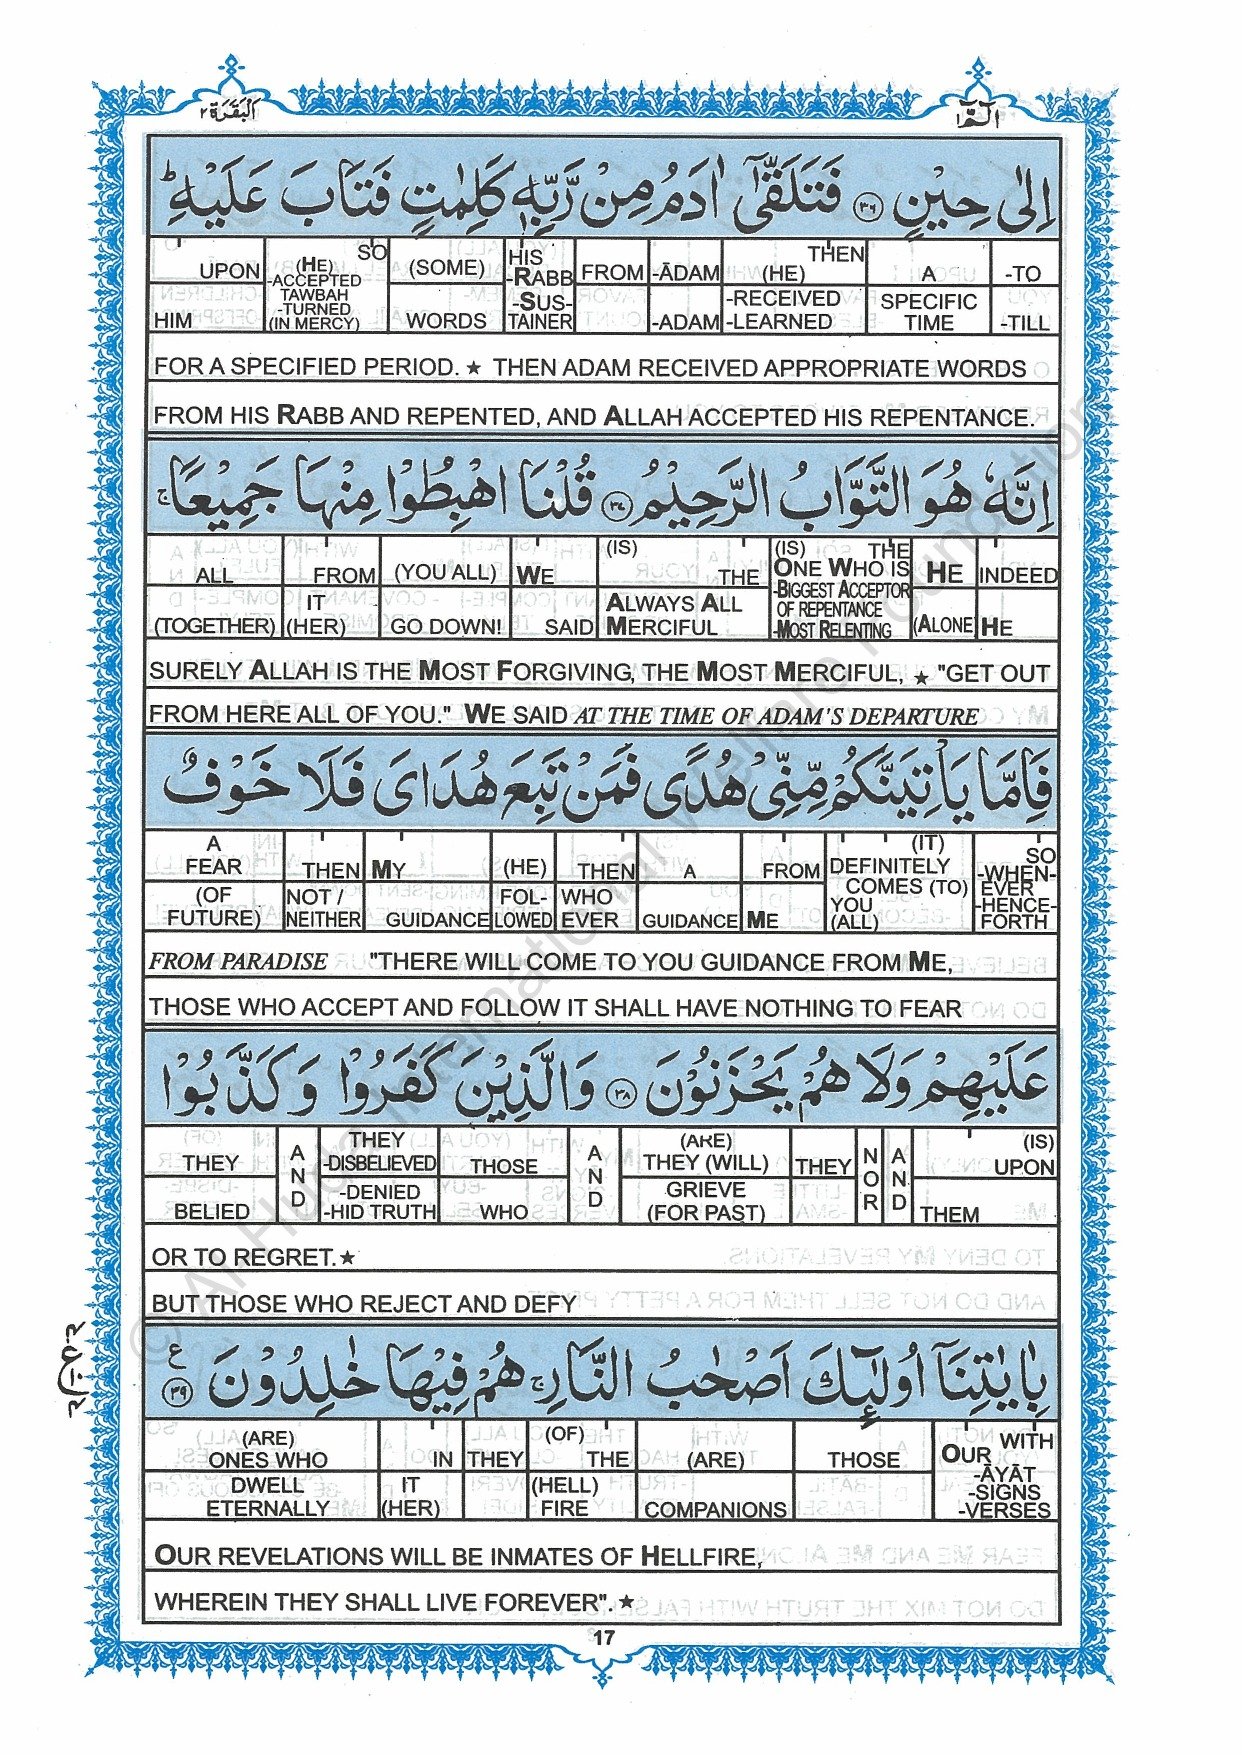 البقرة ٢
الٓمّٓ ١
اِلٰى حِيْنٍ ۝٣٦ فَتَلَقّٰٓى اٰدَمُ مِنْ رَّبِّهٖ كَلِمٰتٍ فَتَابَ عَلَيْهِ ؕ
UPON (HE) SO (SOME) HIS FROM -ĀDAM THEN A -TO
-ACCEPTED -RABB (HE)
TAWBAH
HIM -TURNED WORDS -SUS- -ADAM -RECEIVED SPECIFIC -TILL
(IN MERCY) TAINER -LEARNED TIME
FOR A SPECIFIED PERIOD. ★ THEN ADAM RECEIVED APPROPRIATE WORDS
FROM HIS RABB AND REPENTED, AND ALLAH ACCEPTED HIS REPENTANCE.
اِنَّهٗ هُوَ التَّوَّابُ الرَّحِيْمُ ۝٣٧ قُلْنَا اهْبِطُوْا مِنْهَا جَمِيْعًا ۚ
(IS) (IS) THE
ALL FROM (YOU ALL) WE THE ONE WHO IS HE INDEED
IT -BIGGEST ACCEPTOR
ALWAYS ALL OF REPENTANCE
(TOGETHER) (HER) GO DOWN! SAID MERCIFUL -MOST RELENTING (ALONE) HE
SURELY ALLAH IS THE MOST FORGIVING, THE MOST MERCIFUL, ★ "GET OUT
FROM HERE ALL OF YOU." WE SAID AT THE TIME OF ADAM'S DEPARTURE
فَاِمَّا يَاْتِيَنَّكُمْ مِّنِّىْ هُدًى فَمَنْ تَبِعَ هُدَاىَ فَلَا خَوْفٌ
A (IT) SO
FEAR THEN MY (HE) THEN A FROM DEFINITELY -WHEN-
(OF NOT / FOL- WHO COMES (TO) EVER
FUTURE) NEITHER GUIDANCE LOWED EVER GUIDANCE ME YOU -HENCE-
(ALL) FORTH
FROM PARADISE "THERE WILL COME TO YOU GUIDANCE FROM ME,
THOSE WHO ACCEPT AND FOLLOW IT SHALL HAVE NOTHING TO FEAR
عَلَيْهِمْ وَلَا هُمْ يَحْزَنُوْنَ ۝٣٨ وَالَّذِيْنَ كَفَرُوْا وَكَذَّبُوْا
THEY (ARE) (IS)
THEY AND -DISBELIEVED THOSE AND THEY (WILL) THEY NOR AND UPON
-DENIED GRIEVE
BELIED -HID TRUTH WHO (FOR PAST) THEM
OR TO REGRET.★
BUT THOSE WHO REJECT AND DEFY
بِاٰيٰتِنَآ اُولٰٓئِكَ اَصْحٰبُ النَّارِ ۚ هُمْ فِيْهَا خٰلِدُوْنَ ۝٣٩ ع
(ARE) (OF) WITH
ONES WHO IN THEY THE (ARE) THOSE OUR
DWELL IT (HELL) -ĀYĀT
-SIGNS
ETERNALLY (HER) FIRE COMPANIONS -VERSES
OUR REVELATIONS WILL BE INMATES OF HELLFIRE,
WHEREIN THEY SHALL LIVE FOREVER". ★
17